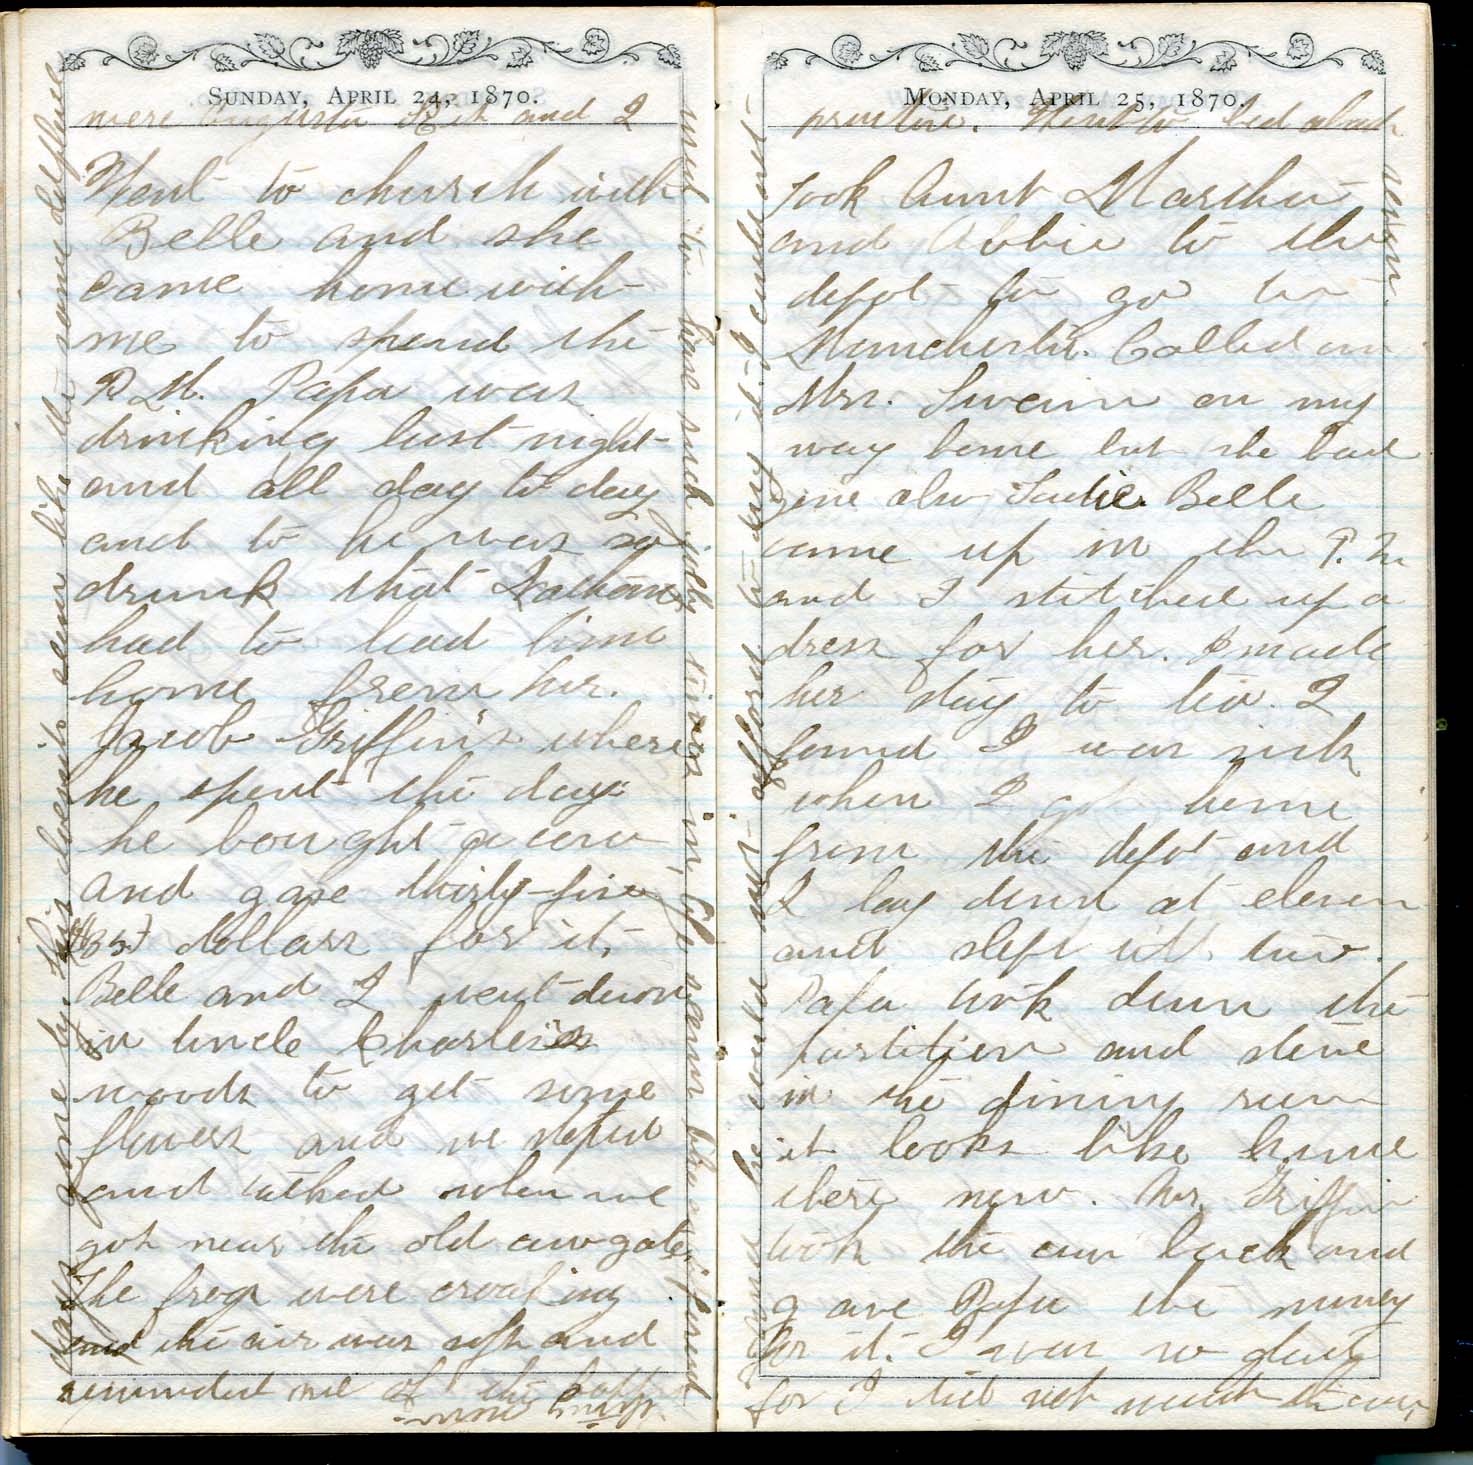 Sunday, April 24, 1870.
were Augusta and I
Went to church with
Belle and she
came home with
me to spend the
P.M. Papa was
drinking last night
and all day to day
and to he was so
drunk that
had to lead him
home from Mr.
Jacob Griffin's where
he spent the day
he bought a cow
and gave thirty-five
($35) dollars for it,
Belle and I went down
in Uncle Charles's
woods to get some
flowers and we stoped
and talked when we
got near the old cow gate,
The frogs were croaking
and the air was soft and
reminded me of the happy
days gone by this doesnt seem like the same old place
used to have such jolly times in, Us
Monday, April 25, 1870.
Went to bed about
seven.
Took Aunt Marthia
and Abbie to the
depot to go to
Manchester. Called on
Mrs. Swain on my
way home but she had
gone also Sadie. Belle
came up in the P.M.
and I stitched up a
dress for her. I made
her stay to tea. I
found I was sick
when I got home
from the depot and
I lay down at eleven
and slept till two.
Papa took down the
partition and stove
in the dining room
it looks like home
there now. Mr. Griffin
took the cow back and
gave Papa the money
for it. I was so glad
for I did not want the cow,
he could not afford to buy it. I